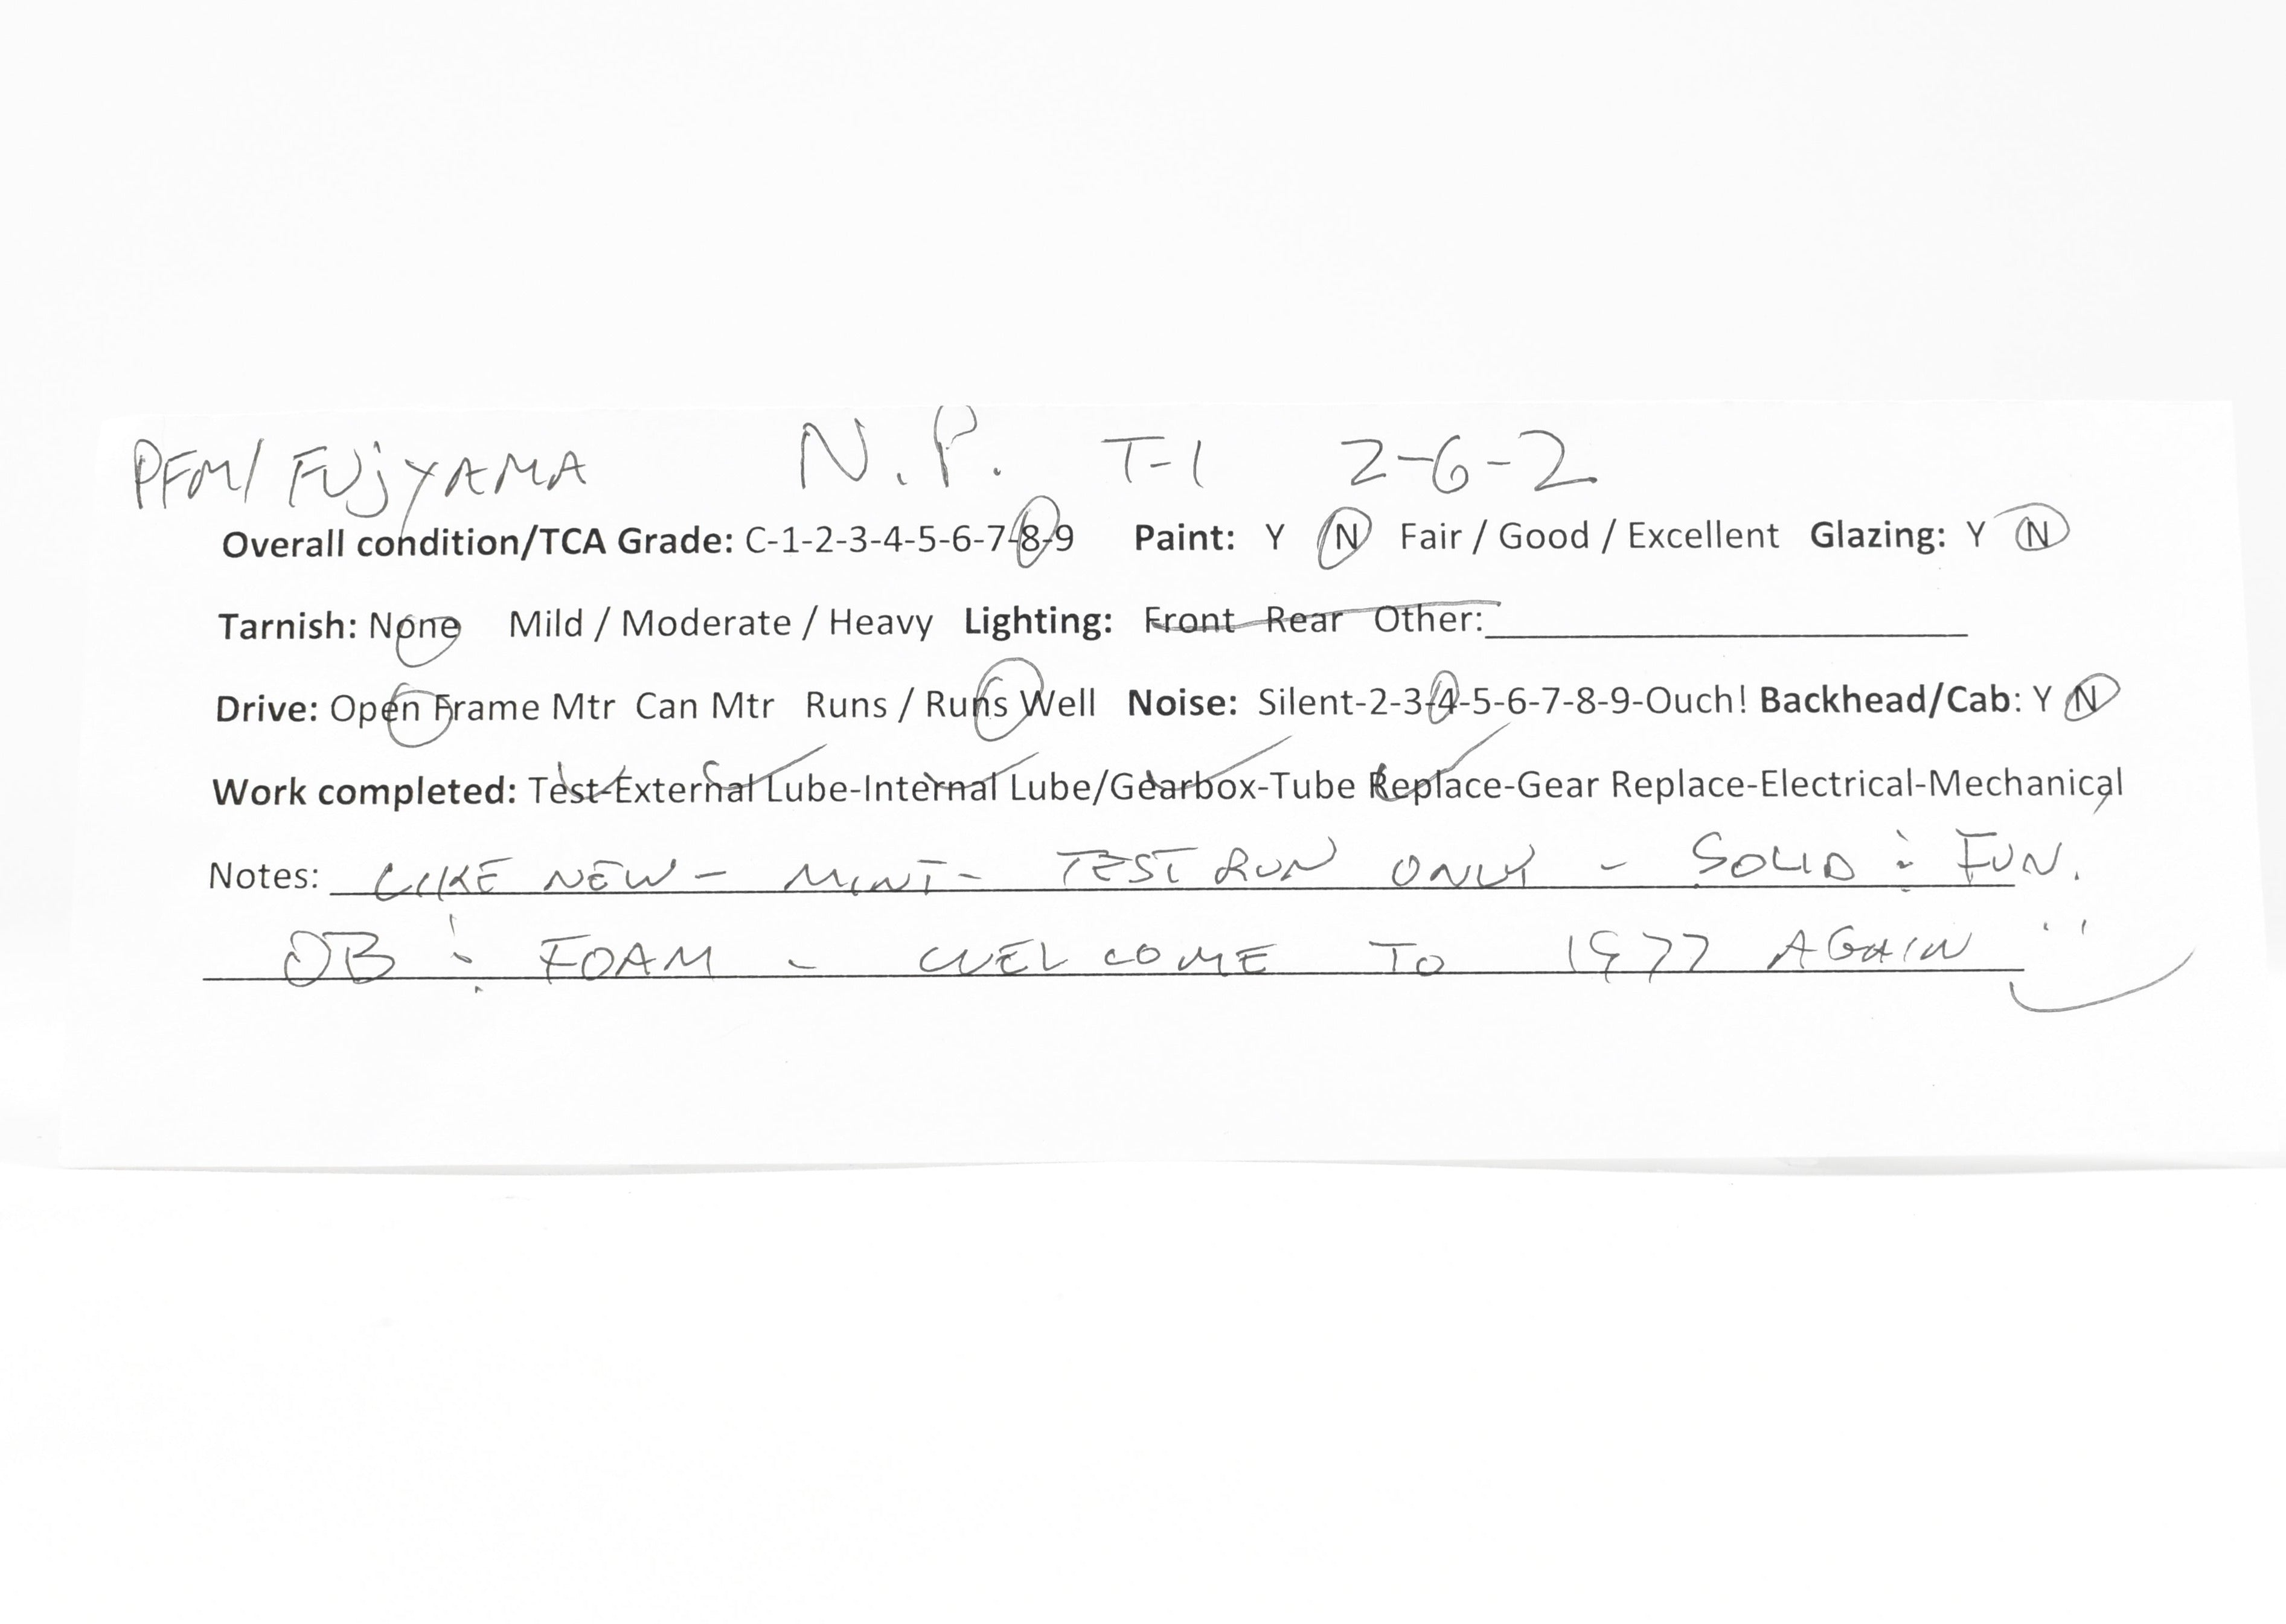 PFM/FUJYAMA N.P. T-1 2-6-2
Overall condition/TCA Grade: C-1-2-3-4-5-6-7-8-9 Paint: Y N Fair / Good / Excellent Glazing: Y N
Tarnish: None Mild / Moderate / Heavy Lighting: Front Rear Other:
Drive: Open Frame Mtr Can Mtr Runs / Runs Well Noise: Silent-2-3-4-5-6-7-8-9-Ouch! Backhead/Cab: Y N
Work completed: Test-External Lube-Internal Lube/Gearbox-Tube Replace-Gear Replace-Electrical-Mechanical
Notes: LIKE NEW - MINT - TEST RUN ONLY - SOLID & FUN.
OB & FOAM - WELCOME TO 1977 AGAIN